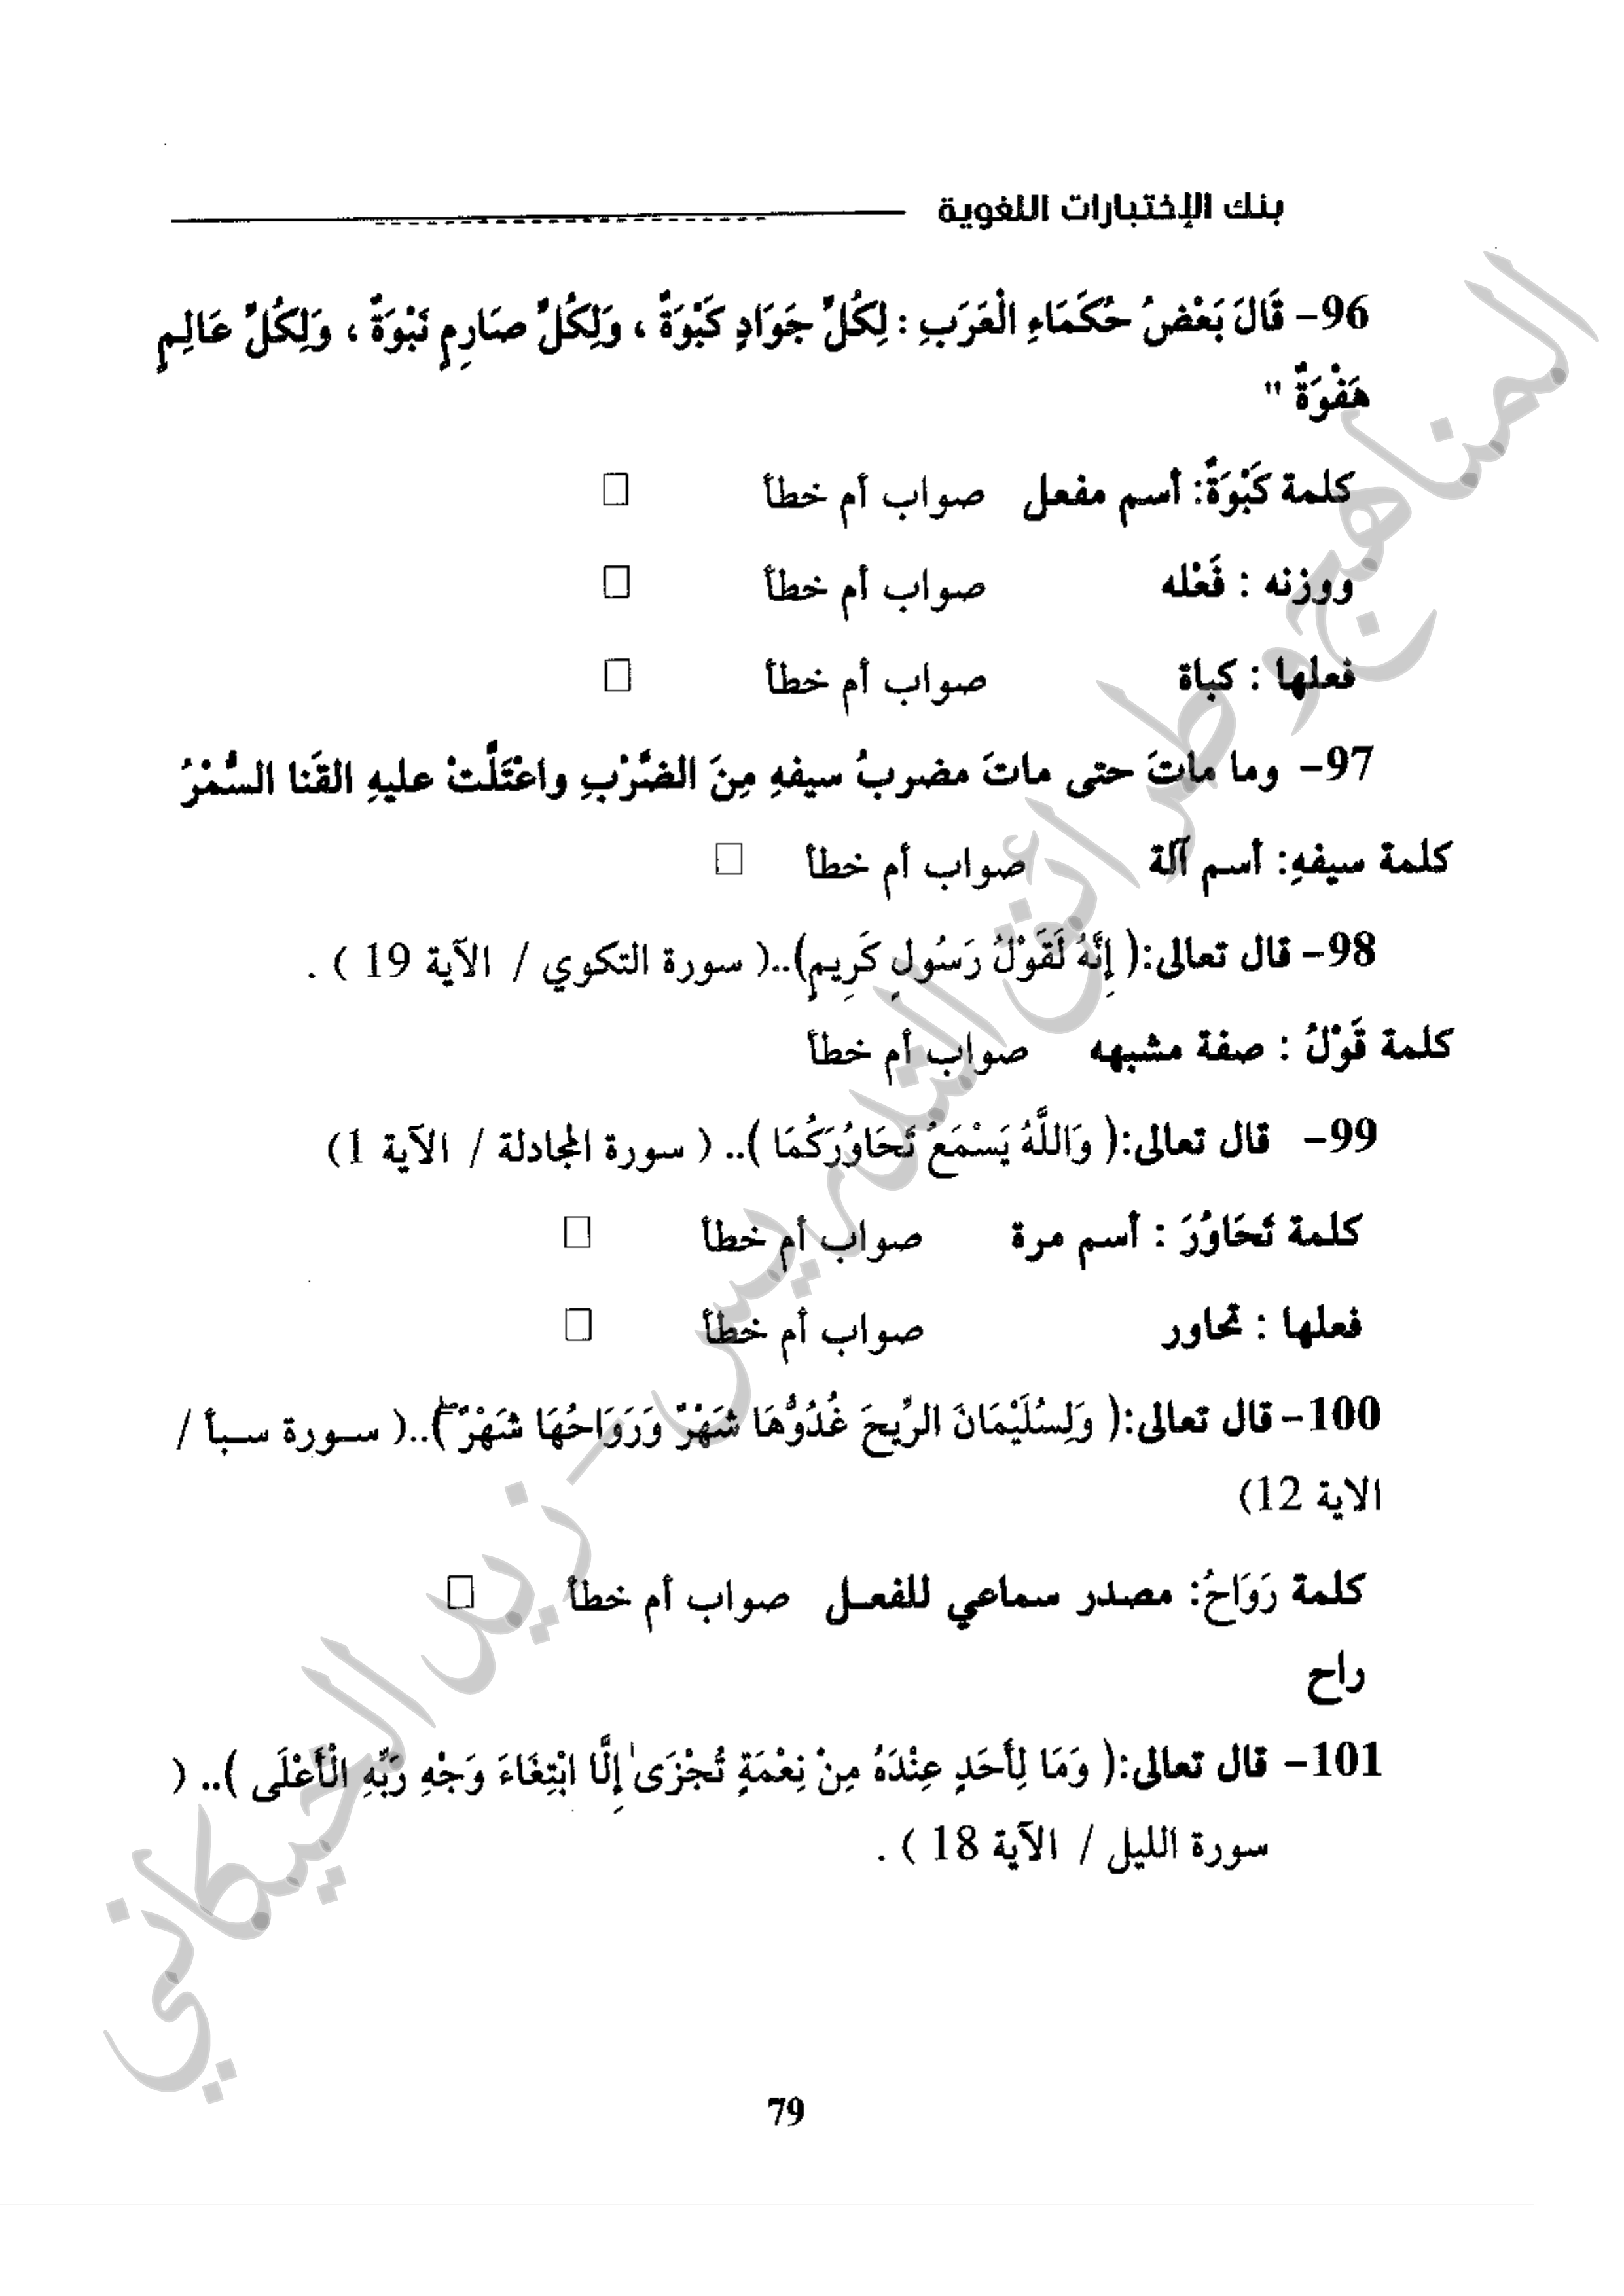 بنك الإختبارات اللغوية
96- قَالَ بَعْضُ حُكَمَاءِ الْعَرَبِ : لِكُلِّ جَوَادٍ كَبْوَةٌ ، وَلِكُلِّ صَارِمٍ نَبْوَةٌ ، وَلِكُلِّ عَالِمٍ
هَفْوَةٌ "
كلمة كَبْوَةٌ: أسم مفعل صواب أم خطأ □
ووزنه : فَعْله صواب أم خطأ □
فعلها : كباة صواب أم خطأ □
97- وما ماتَ حتى ماتَ مضربُ سيفهِ مِنَ الضَّرْبِ واعْتَلَّتْ عليهِ القَنا السُّمْرُ
كلمة سيفهِ: أسم آلة صواب أم خطأ □
98- قال تعالى:( إِنَّهُ لَقَوْلُ رَسُولٍ كَرِيمٍ)..( سورة التكوي / الآية 19 ) .
كلمة قَوْلُ : صفة مشبهه صواب أم خطأ
99- قال تعالى:( وَاللَّهُ يَسْمَعُ تَحَاوُرَكُمَا ).. ( سورة المجادلة / الآية 1)
كلمة تَحَاوُرَ : أسم مرة صواب أم خطأ □
فعلها : تحاور صواب أم خطأ □
100- قال تعالى:( وَلِسُلَيْمَانَ الرِّيحَ غُدُوُّهَا شَهْرٌ وَرَوَاحُهَا شَهْرٌ ۖ)..( سـورة سـبأ /
الاية 12)
كلمة رَوَاحُ: مصدر سماعي للفعـل صواب أم خطأ □
راح
101- قال تعالى:( وَمَا لِأَحَدٍ عِنْدَهُ مِنْ نِعْمَةٍ تُجْزَىٰ إِلَّا ابْتِغَاءَ وَجْهِ رَبِّهِ الْأَعْلَى ).. (
سورة الليل / الآية 18 ) .
79
المناهج و طرائق التدريس - زيد الخيكاني